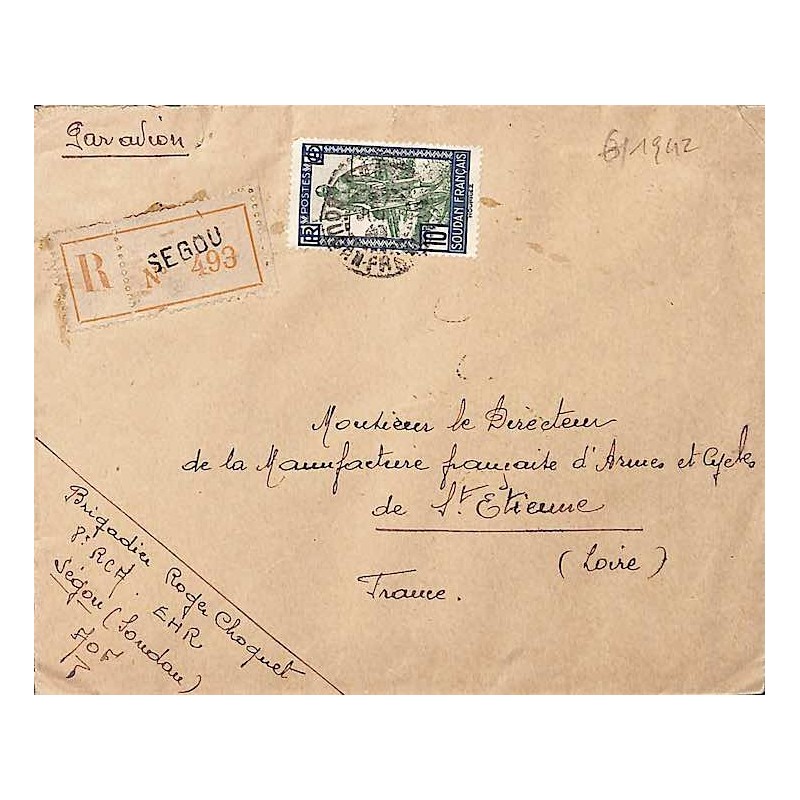 Par avion
6/1942
POSTES
RF
SOUDAN FRANÇAIS
10F
R SEGOU
N° 493
Monsieur le Directeur
de la Manufacture française d'Armes et Cycles
de St Etienne
(Loire)
France.
Brigadier Roger Choquet
EHR
Ségou (Soudan)
AOF